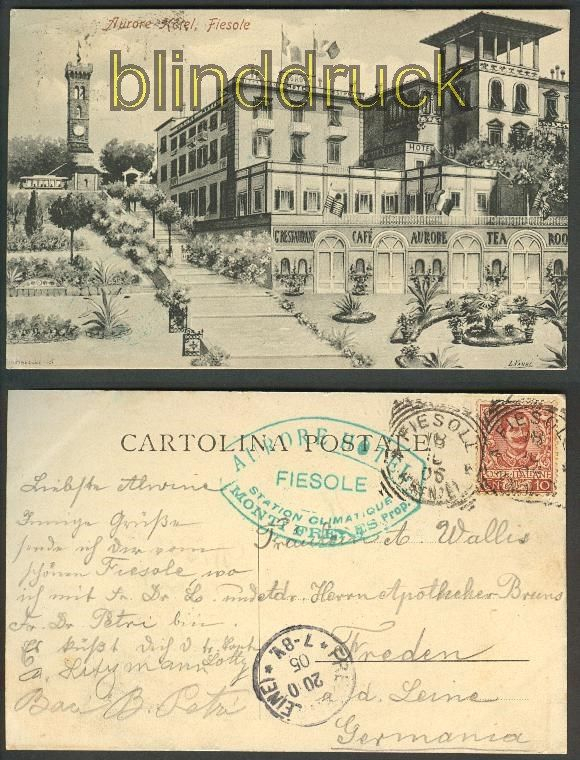 Aurore Hôtel, Fiesole
blinddruck
HOTEL
RESTAURANT CAFÉ AURORE TEA ROO
CARTOLINA POSTALE
AURORE HOTEL
FIESOLE
STATION CLIMATIQUE
MONTI FRÈRES Prop.
FIESOLE
FIESOLE
POSTE ITALIANE
10
Liebste Alwine
Innige Grüße
sende ich dir vom
schönen Fiesole, wo
ich mit Fr. Dr. L. und
Fr. Dr Petri bin.
Es küßt dich d. tr.
Lotty
B. Petri
Fräulein A. Wallis
adr. Herrn Apotheker Bruns
Freden
a/d. Leine
Germania
20 05 * 7-8V. *
(LEINE)